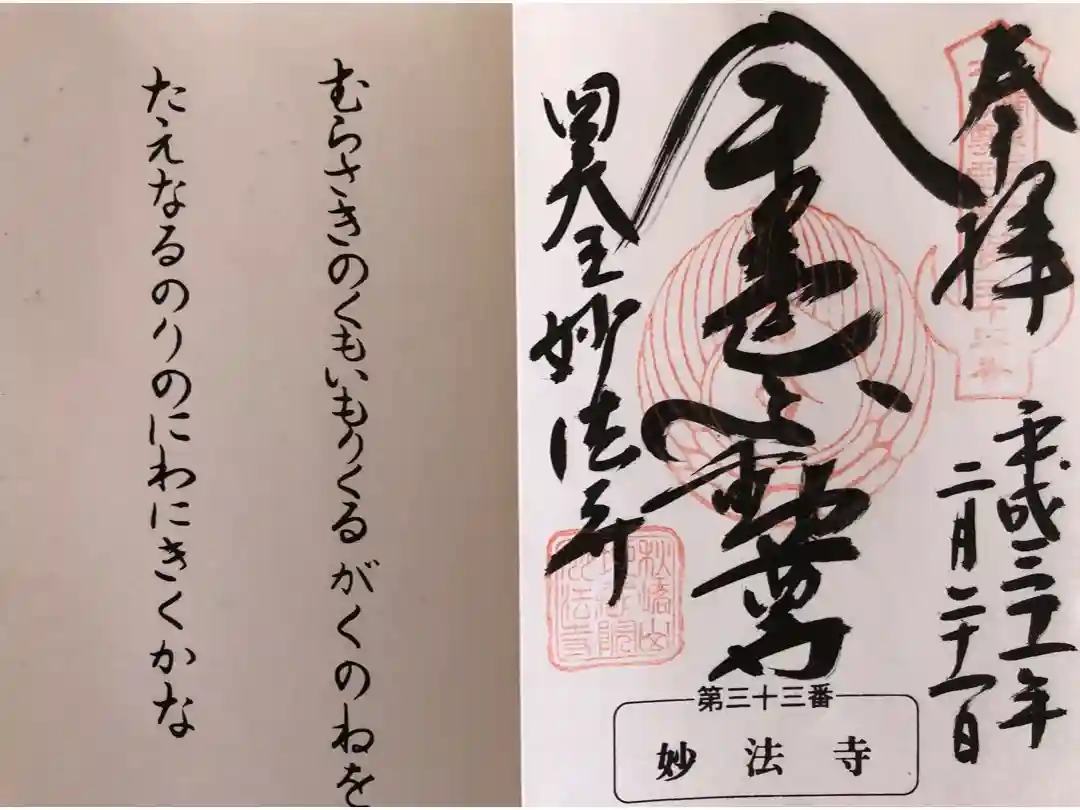 奉拝
平成三十一年
二月二十一日
不動尊
妙法寺
第三十三番
妙法寺
むらさきのくもいもりくる がくのねを
たえなるのりのにわにきくかな